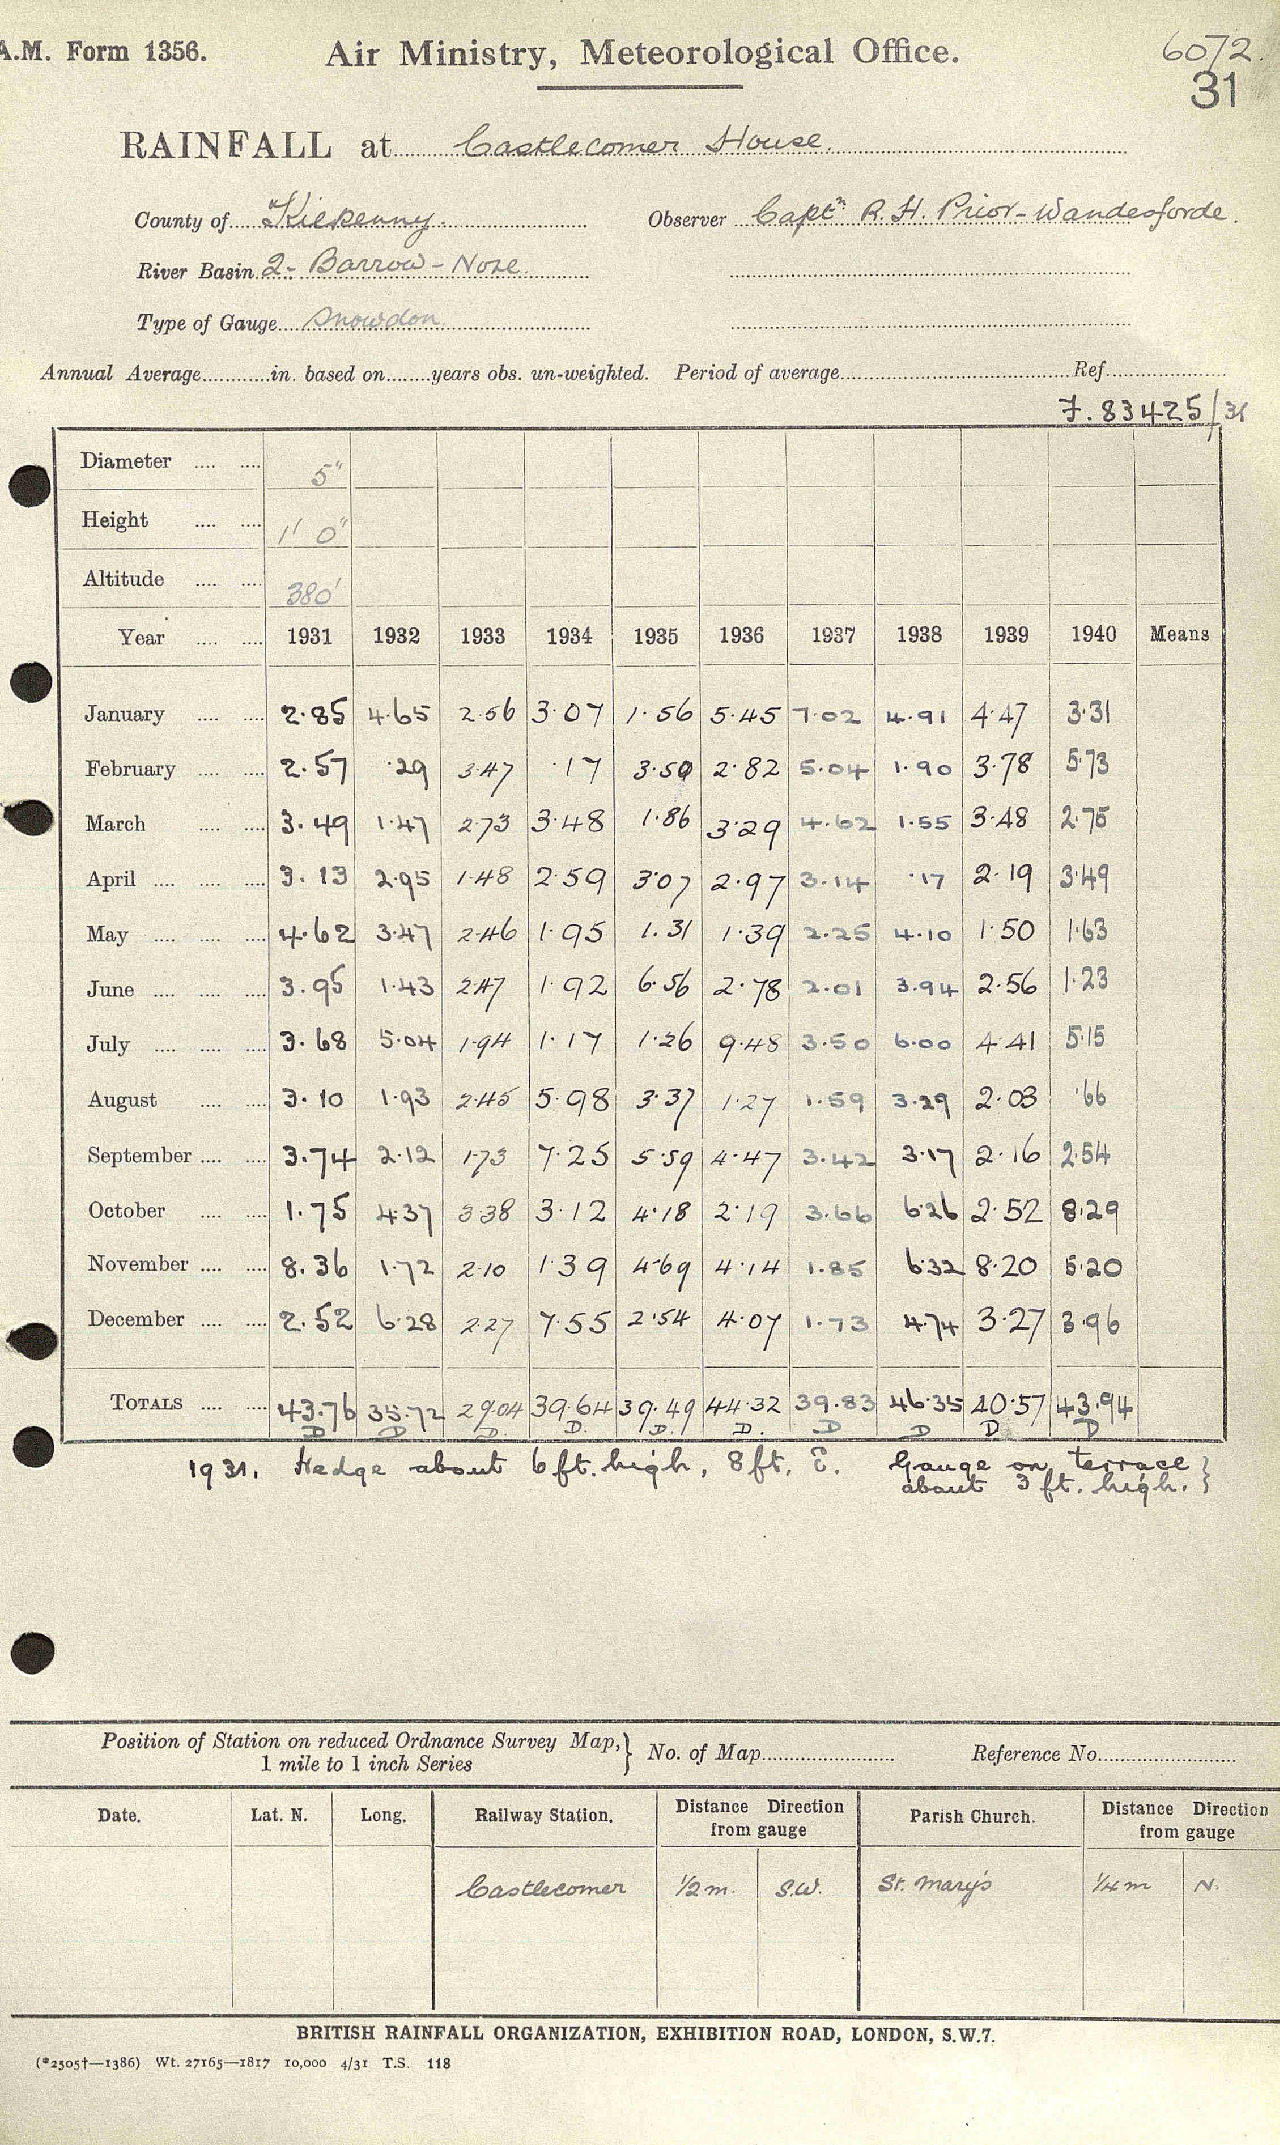 A.M. Form 1356.
Air Ministry, Meteorological Office.
6072.
31
RAINFALL at Castlecomer House.
County of Kilkenny. Observer Capt. R. H. Prior-Wandesforde.
River Basin 2- Barrow-Nore
Type of Gauge Snowdon
Annual Average in. based on years obs. un-weighted. Period of average Ref.
F.83425/31
Diameter 5"
Height 1' 0"
Altitude 380'
Year 1931 1932 1933 1934 1935 1936 1937 1938 1939 1940 Means
January 2.85 4.65 2.56 3.07 1.56 5.45 7.02 4.91 4.47 3.31
February 2.57 .29 3.47 .17 3.50 2.82 5.04 1.90 3.78 5.73
March 3.49 1.47 2.73 3.48 1.86 3.29 4.62 1.55 3.48 2.75
April 3.13 2.95 1.48 2.59 3.07 2.97 3.14 .17 2.19 3.49
May 4.62 3.47 2.46 1.95 1.31 1.39 2.25 4.10 1.50 1.63
June 3.95 1.43 2.47 1.92 6.56 2.78 2.01 3.94 2.56 1.23
July 3.68 5.04 1.94 1.17 1.26 9.48 3.50 6.00 4.41 5.15
August 3.10 1.93 2.45 5.98 3.37 1.27 1.59 3.29 2.03 .66
September 3.74 2.12 1.73 7.25 5.59 4.47 3.42 3.17 2.16 2.54
October 1.75 4.37 3.38 3.12 4.18 2.19 3.66 6.26 2.52 8.29
November 8.36 1.72 2.10 1.39 4.69 4.14 1.85 6.32 8.20 5.20
December 2.52 6.28 2.27 7.55 2.54 4.07 1.73 4.74 3.27 3.96
TOTALS 43.76 35.72 29.04 39.64 39.49 44.32 39.83 46.35 40.57 43.94
D D D. D. D. D. D D D D
1931. Hedge about 6 ft. high, 8 ft. E. Gauge on terrace }
about 3 ft. high. }
Position of Station on reduced Ordnance Survey Map, } No. of Map Reference No.
1 mile to 1 inch Series
Date. Lat. N. Long. Railway Station. Distance Direction from gauge Parish Church. Distance Direction from gauge
Castlecomer 1/2 m. S.W. St. Mary's 1/4 m N.
BRITISH RAINFALL ORGANIZATION, EXHIBITION ROAD, LONDON, S.W.7.
(*2505†—1386) Wt. 27165—1817 10,000 4/31 T.S. 118